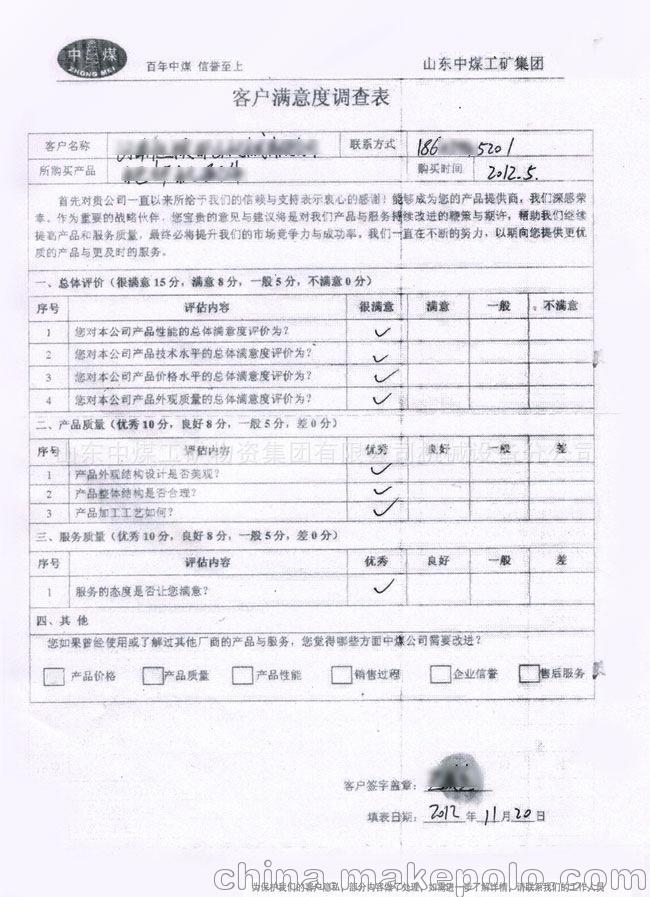 中煤
ZHONG MEI
百年中煤 信誉至上
山东中煤工矿集团
客户满意度调查表
客户名称 联系方式 186 5201
所购买产品 购买时间 2012.5.
首先对贵公司一直以来所给于我们的信赖与支持表示衷心的感谢！能够成为您的产品提供商，我们深感荣
幸。作为重要的战略伙伴，您宝贵的意见与建议将是对我们产品与服务持续改进的鞭策与期许，帮助我们继续
提高产品和服务质量，最终必将提升我们的市场竞争力与成功率。我们一直在不断的努力，以期向您提供更优
质的产品与更及时的服务。
一、总体评价（很满意 15 分，满意 8 分，一般 5 分，不满意 0 分）
序号 评估内容 很满意 满意 一般 不满意
1 您对本公司产品性能的总体满意度评价为？ ✓
2 您对本公司产品技术水平的总体满意度评价为？ ✓
3 您对本公司产品价格水平的总体满意度评价为？ ✓
4 您对本公司产品外观质量的总体满意度评价为？ ✓
二、产品质量（优秀 10 分，良好 8 分，一般 5 分，差 0 分）
序号 评估内容 优秀 良好 一般 差
山东中煤工矿物资集团有限公司机械设备分公司
1 产品外观结构设计是否美观？ ✓
2 产品整体结构是否合理？ ✓
3 产品加工工艺如何？ ✓
三、服务质量（优秀 10 分，良好 8 分，一般 5 分，差 0 分）
序号 评估内容 优秀 良好 一般 差
1 服务的态度是否让您满意？ ✓
四、其 他
您如果曾经使用或了解过其他厂商的产品与服务，您觉得哪些方面中煤公司需要改进？
产品价格 产品质量 产品性能 销售过程 企业信誉 售后服务
客户签字盖章：
填表日期：2012 年 11 月 20 日
china.makepolo.com
为保护我们的客户隐私，部分内容做了处理，如需进一步了解详情，请联系我们的工作人员